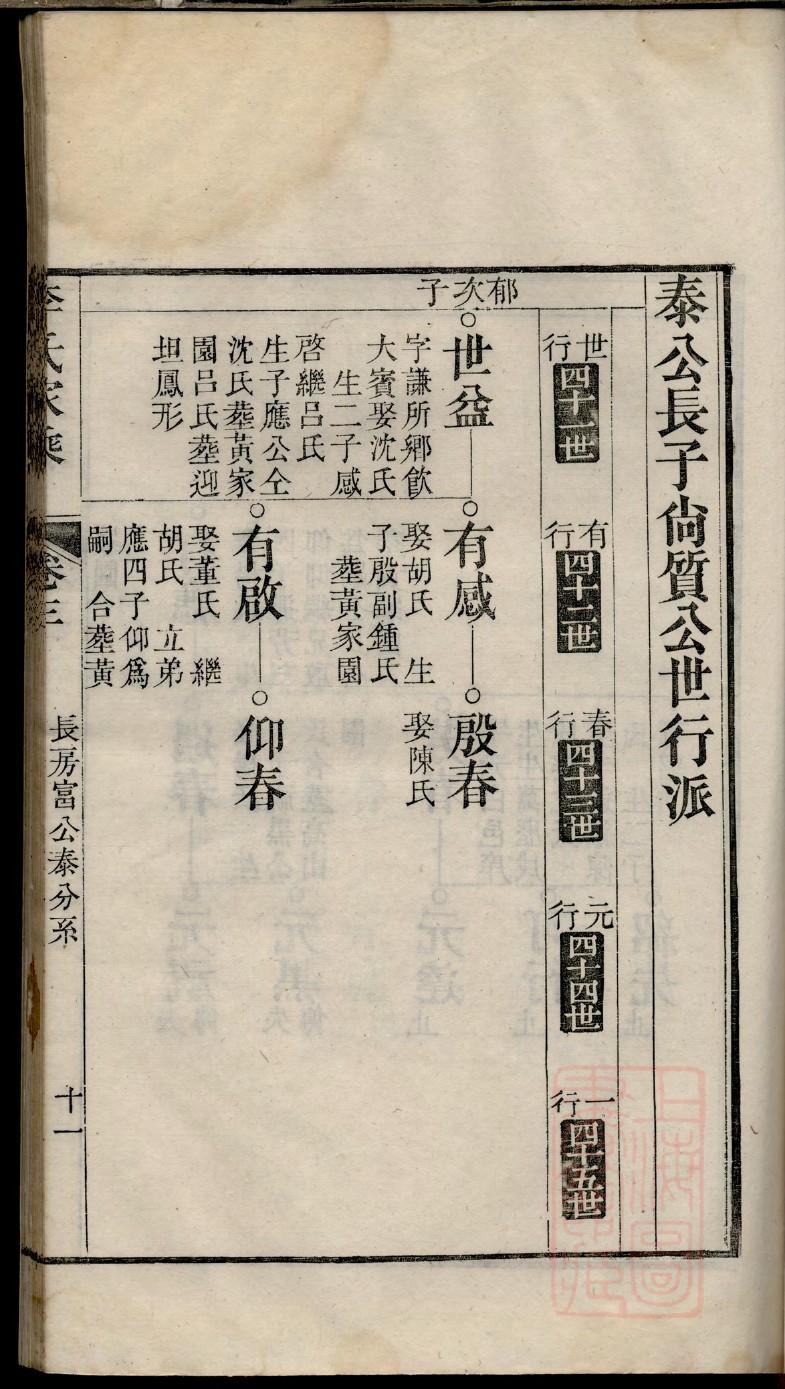 泰公長子尙質公世行派
世行
四十一世
有行
四十二世
春行
四十三世
元行
四十四世
一行
四十五世
郁次子
世益
字謙所鄉飮
大賓娶沈氏
生二子感
啓繼呂氏
生子應公仝
沈氏塟黃家
園呂氏塟迎
坦鳳形
有感
娶胡氏 生
子殷副鍾氏
塟黃家園
殷春
娶陳氏
有啟
娶董氏 繼
胡氏 立弟
應四子仰爲
嗣 合塟黃
仰春
李氏家乘
卷三
長房富公泰分系
十一